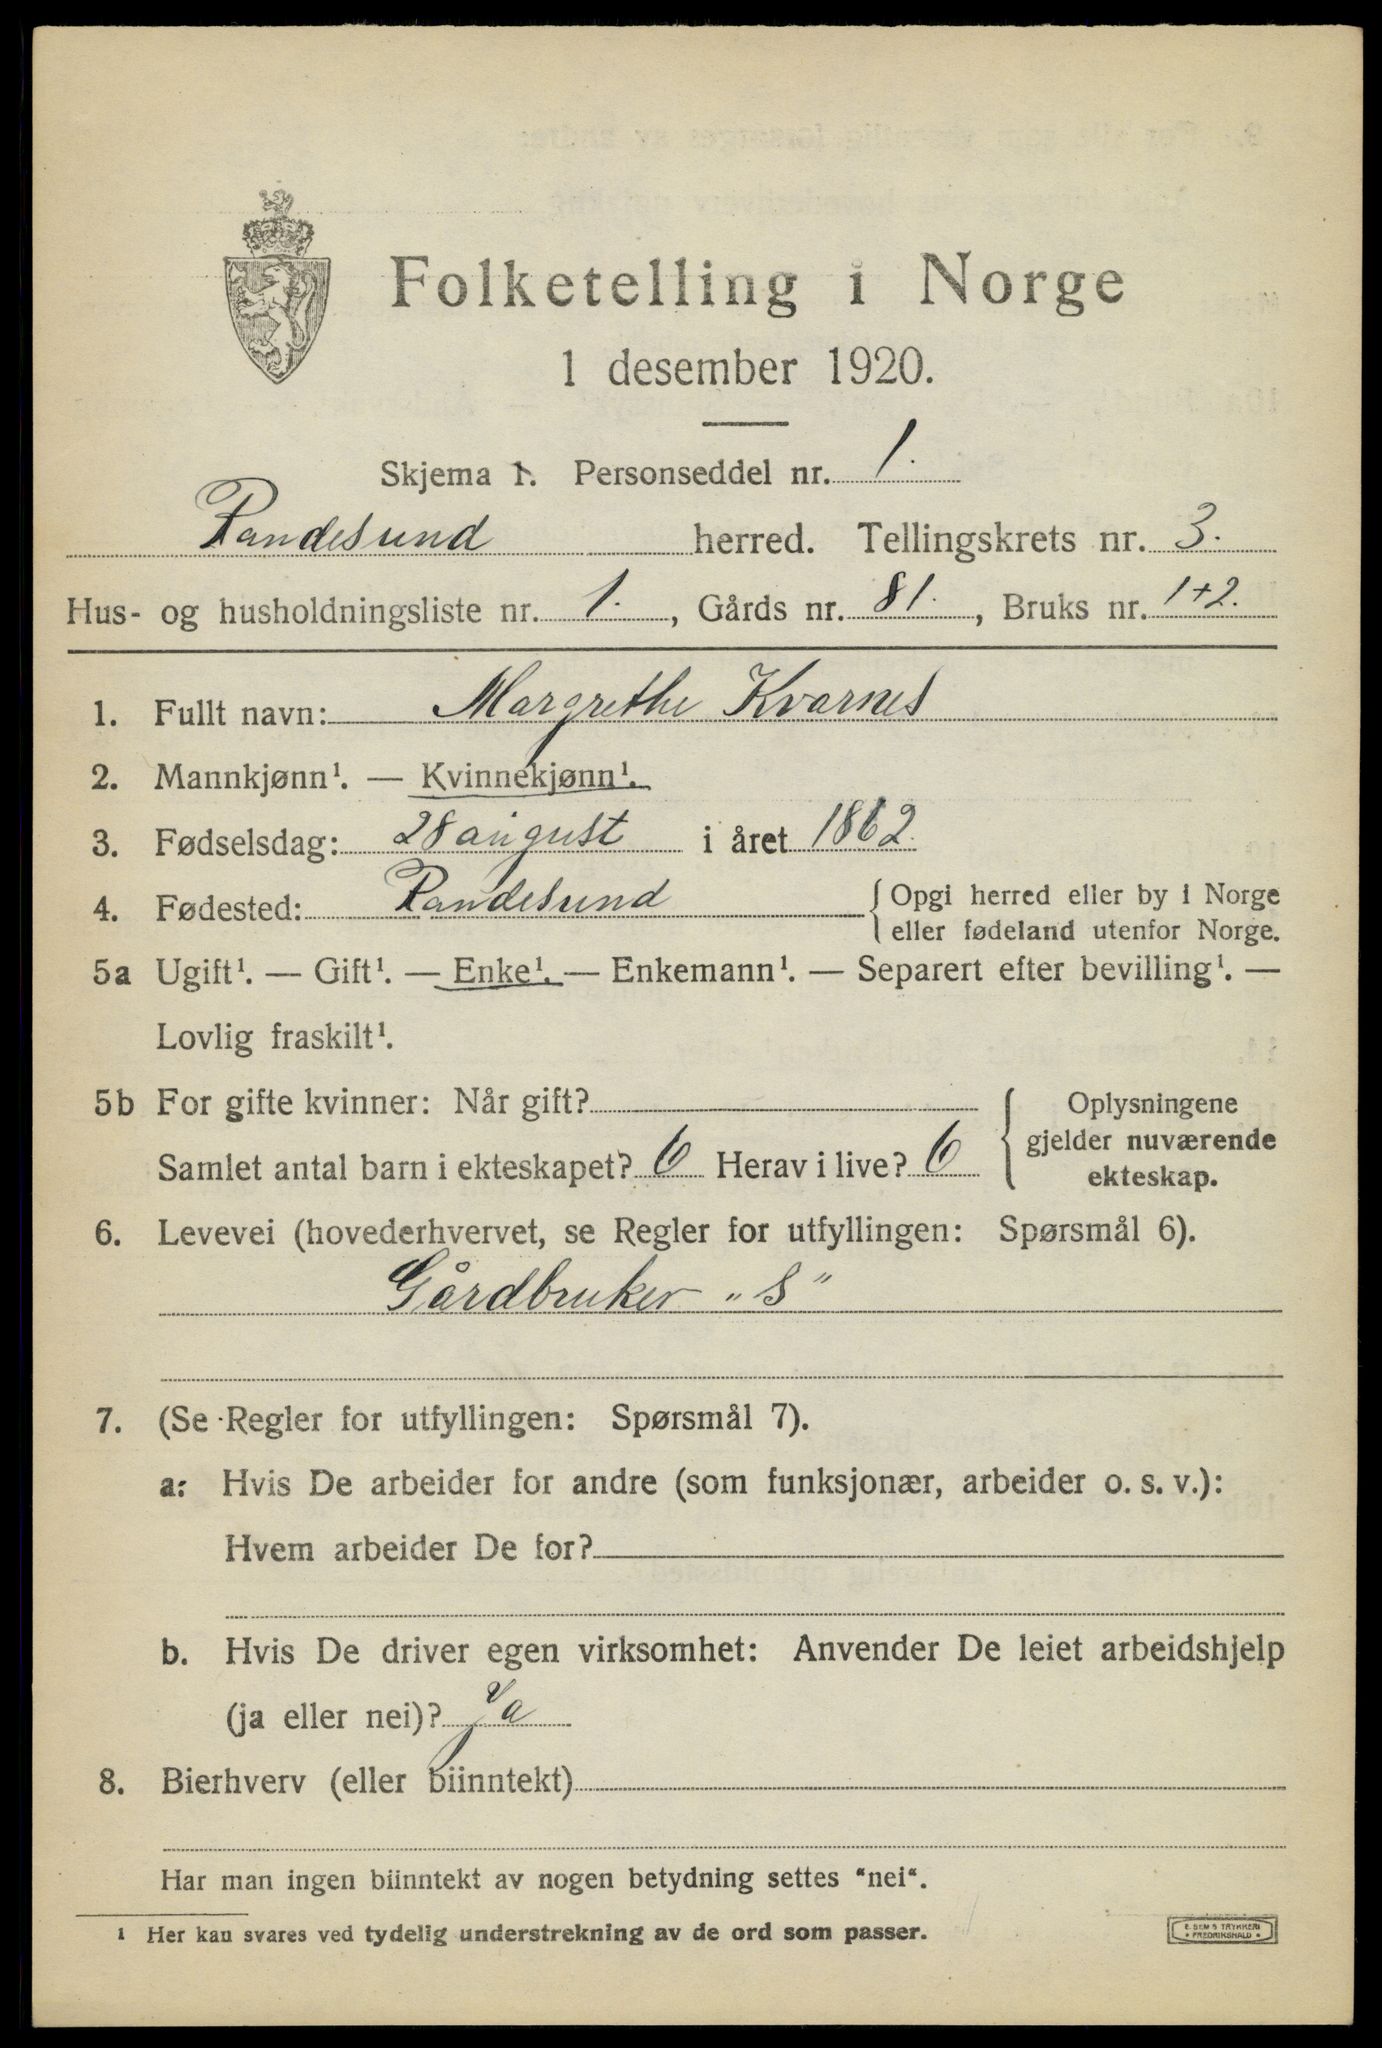 Folketelling i Norge
1 desember 1920.
Skjema 1. Personseddel nr. 1.
Randesund herred. Tellingskrets nr. 3.
Hus- og husholdningsliste nr. 1., Gårds nr. 81., Bruks nr. 1+2.
1. Fullt navn: Margrethe Kvarnes
2. Mannkjønn¹. — Kvinnekjønn¹.
3. Fødselsdag: 28 august i året 1862.
4. Fødested: Randesund { Opgi herred eller by i Norge
eller fødeland utenfor Norge.
5a Ugift¹. — Gift¹. — Enke¹. — Enkemann¹. — Separert efter bevilling¹. —
Lovlig fraskilt¹.
5b For gifte kvinner: Når gift?
Samlet antal barn i ekteskapet? 6 Herav i live? 6
{ Oplysningene
gjelder nuværende
ekteskap.
6. Levevei (hovederhvervet, se Regler for utfyllingen: Spørsmål 6).
Gårdbruker „S“
7. (Se Regler for utfyllingen: Spørsmål 7).
a: Hvis De arbeider for andre (som funksjonær, arbeider o. s. v.):
Hvem arbeider De for?
b. Hvis De driver egen virksomhet: Anvender De leiet arbeidshjelp
(ja eller nei)? Ja
8. Bierhverv (eller biinntekt)
Har man ingen biinntekt av nogen betydning settes "nei“.
¹ Her kan svares ved tydelig understrekning av de ord som passer.
E. SEM'S TRYKKERI
• FREDRIKSHALD •